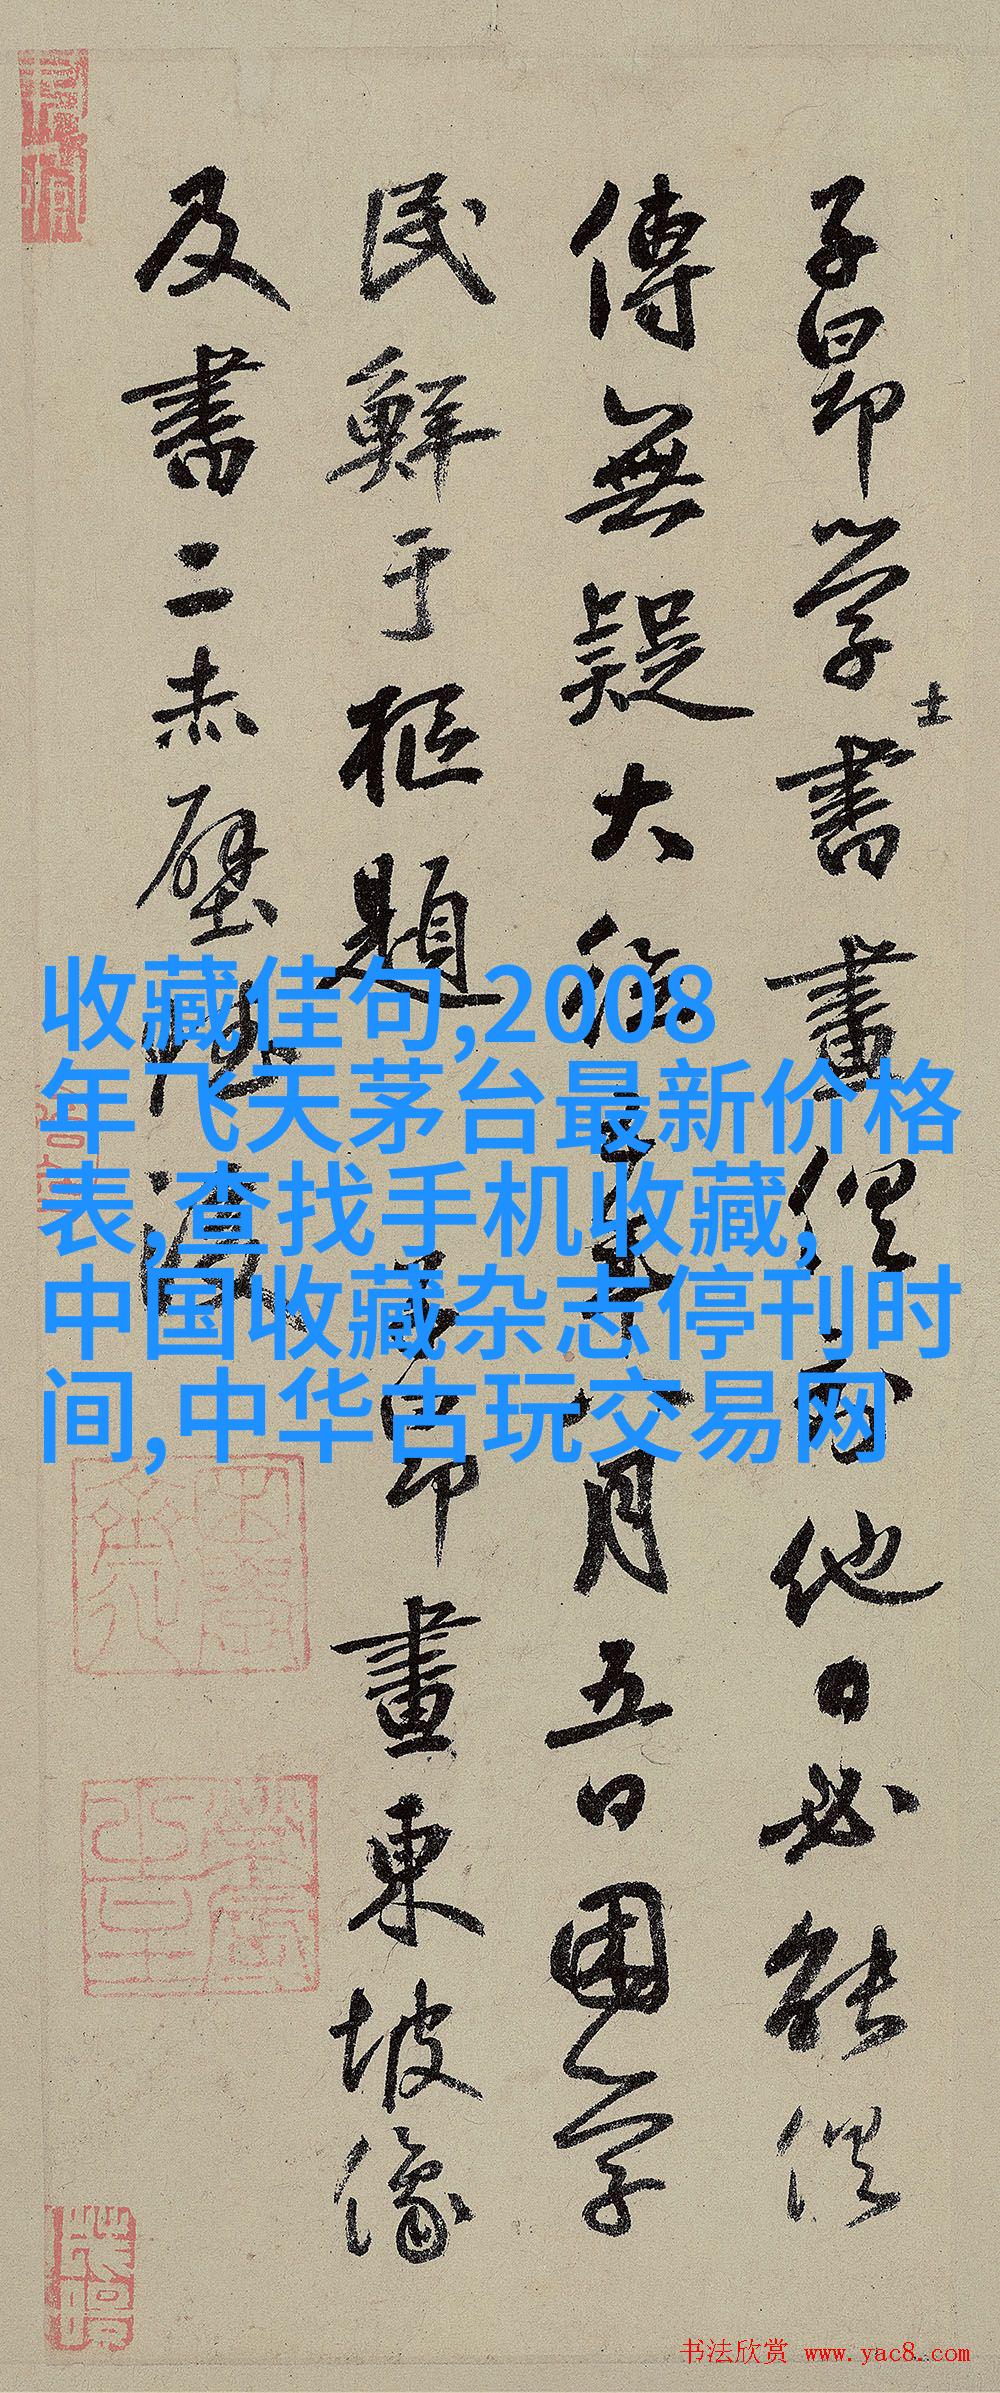 子昂学士書畫俱他日必能俱
傳無疑大月五日困学
民鮮于樞題子昂畫東坡像
及書二赤壁
收藏佳句,2008
年飞天茅台最新价格
表,查找手机收藏,
中国收藏杂志停刊时
间,中华古玩交易网
书法欣赏 www.yac8.com